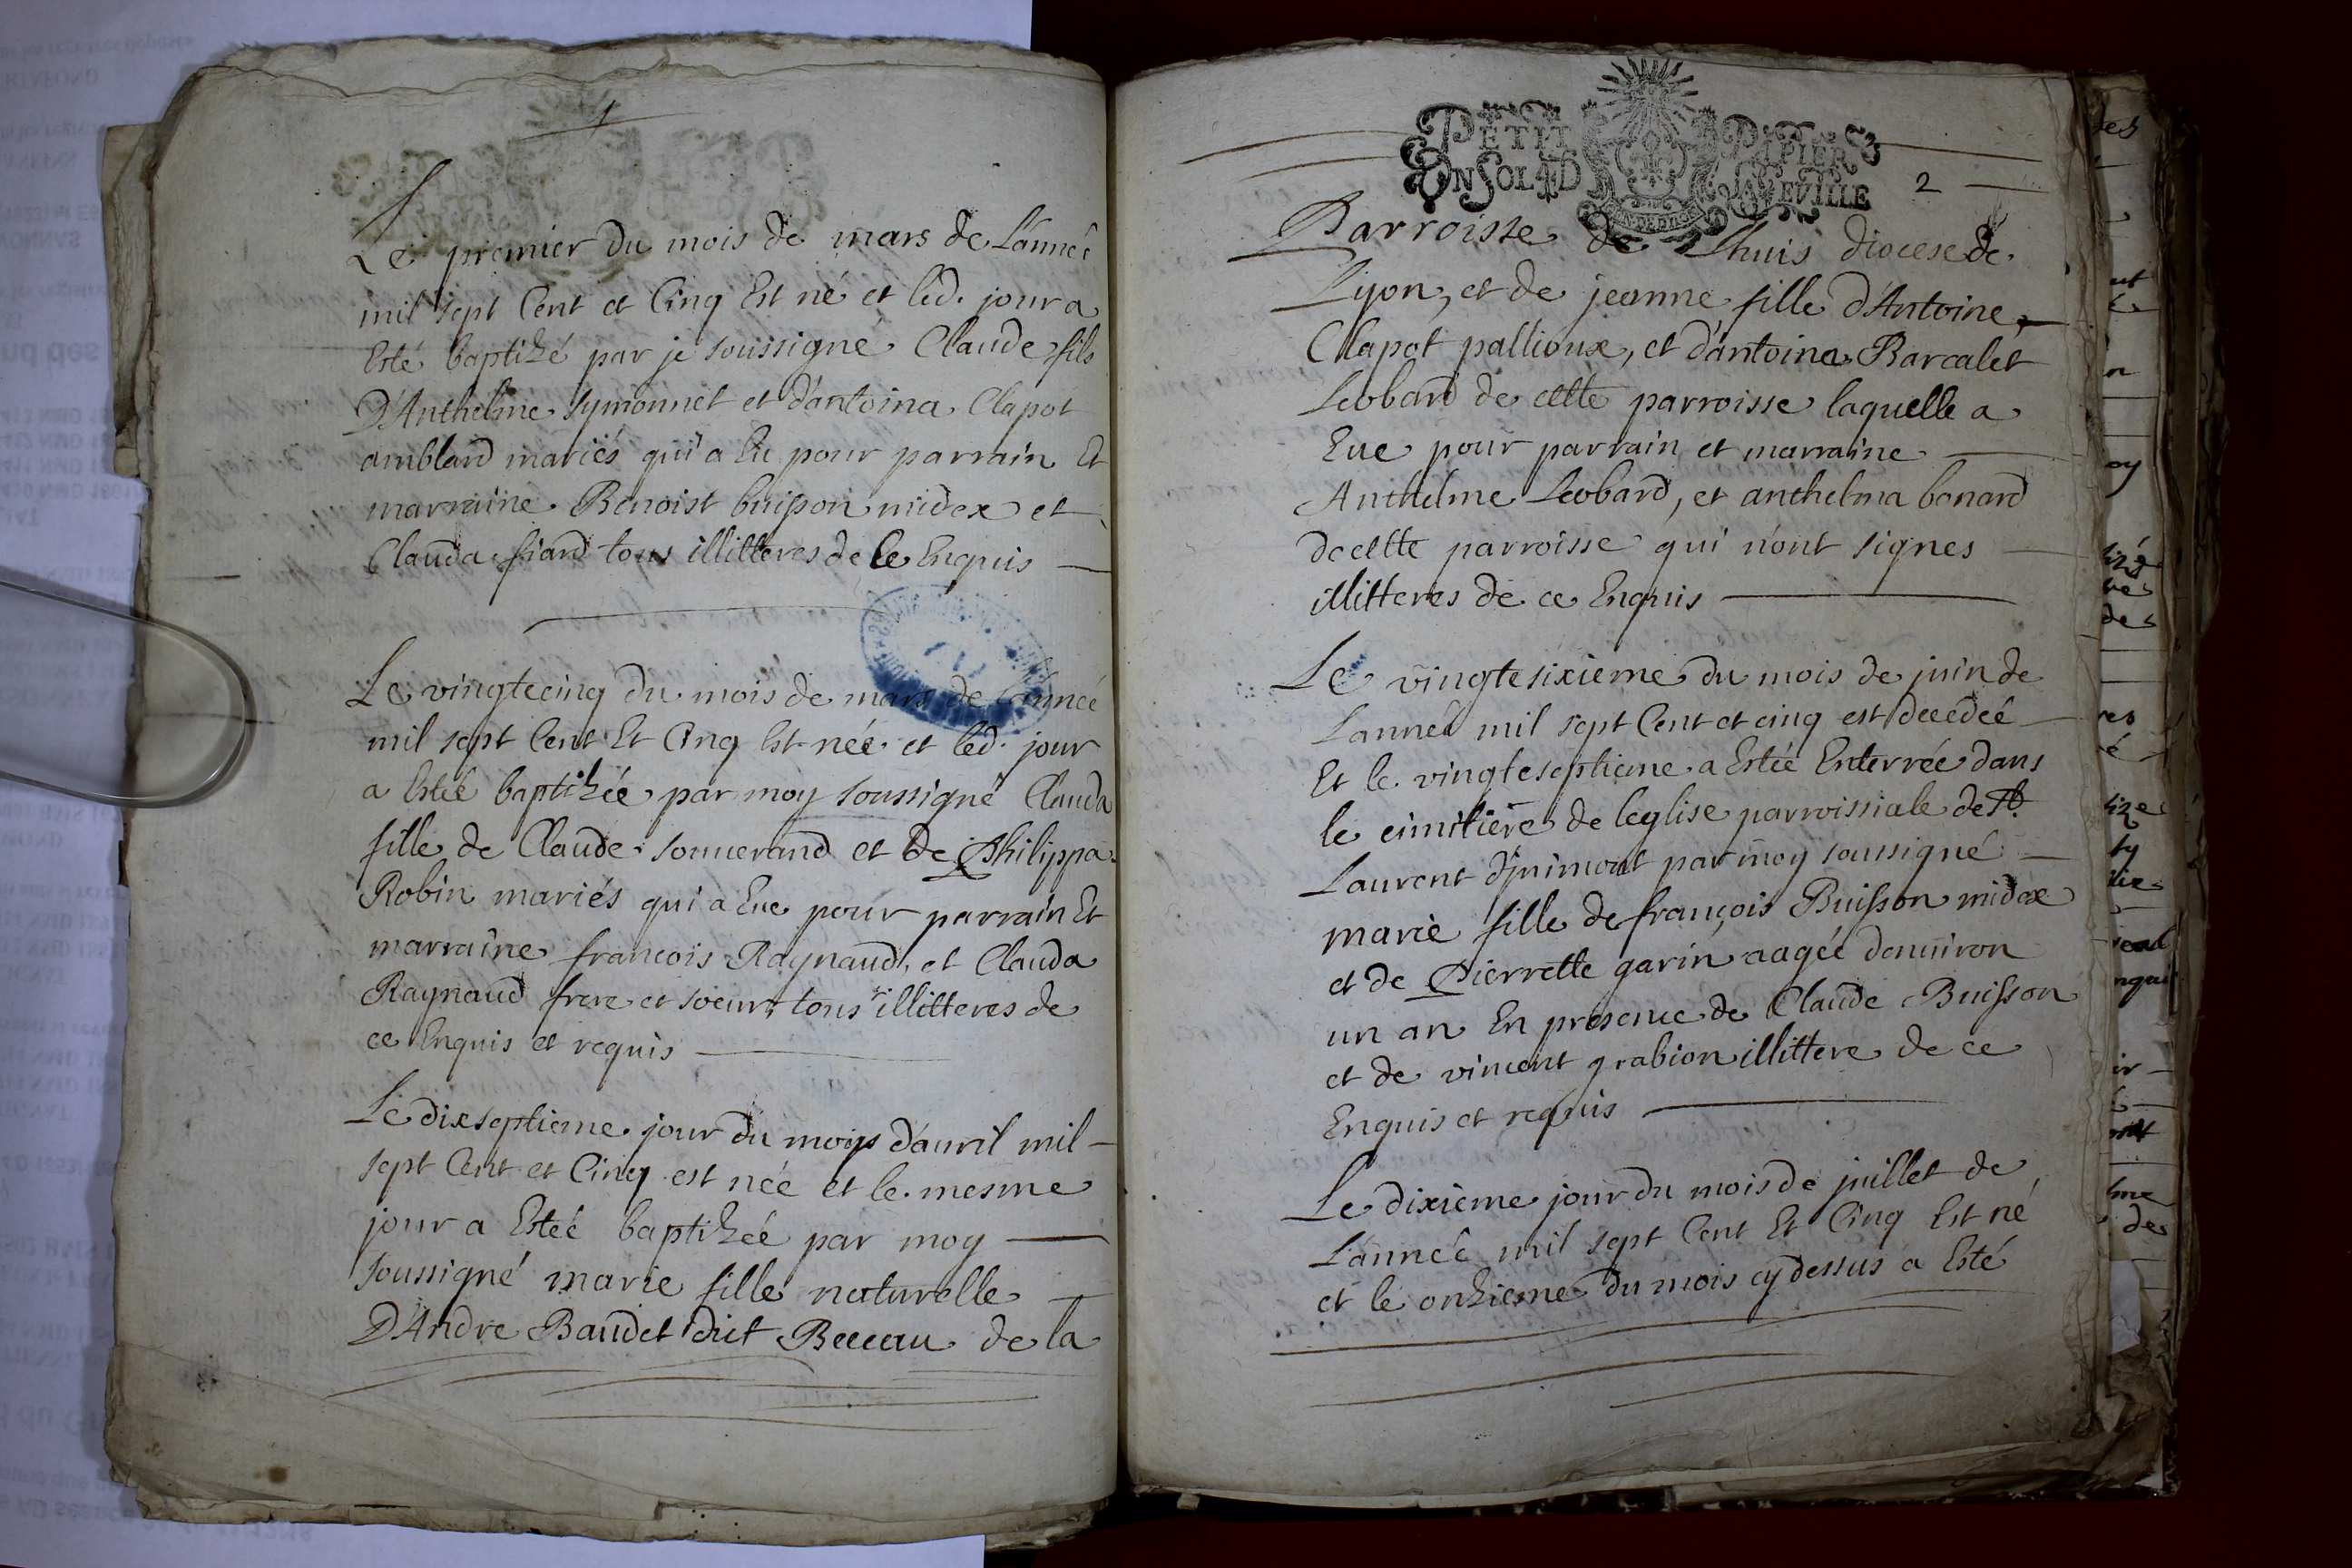 1
Le premier du mois de mars de L'année
mil sept Cent et Cinq Est né et led. jour a
Esté baptizé par je soussigné Claude fils
D'Anthelme Symonnet et d'antoina Clapot
amblard mariés qui a Eu pour parrain Et
marraine Benoist buisson midex et
Clauda fiard tous illitteres de Ce Enquis
Le vingtecinq du mois de mars de L'année
mil sept Cent Et Cinq Est née et led. jour
a Estéé baptizéé par moy soussigné Clauda
fille de Claude souuerand et de Philippa
Robin mariés qui a Eue pour parrain Et
marraine francois Raynaud, et Clauda
Raynaud frere et soeur tous illitteres de
ce Enquis et requis
Le dixseptieme jour du mois d'auril mil
sept Cent et Cinq est née et le mesme
jour a Estéé baptizéé par moy
soussigné marie fille naturelle
D'Andre Baudet dict Beceau de la
PETIT PAPIER
UN SOL 4 D LA FEUILLE
2
Parroisse de Lhuis diocese de
Lyon, et de jeanne fille d'Antoine
Clapot pallioux, et d'antoina Barcalet
Leobard de cette parroisse laquelle a
Eue pour parrain et marraine
Anthelme Leobard, et anthelma bonard
de cette parroisse qui n'ont signes
illitteres de ce Enquis
Le vingtesixieme du mois de juin de
Lanneé mil sept Cent et cinq est decedeé
Et le vingteseptieme a Estéé Enterrée dans
le cimitiere de leglise parroissiale de St.
Laurent d'jnimont par moy soussigné
marie fille de françois Buisson midex
et de Pierrette garin aagéé denuiron
un an En presence de Claude Buisson
et de vincent grabion illittere de ce
Enquis et requis
Le dixieme jour du mois de juillet de
L'annéé mil sept Cent Et Cinq Est né
et le onzieme du mois cy dessus a Esté